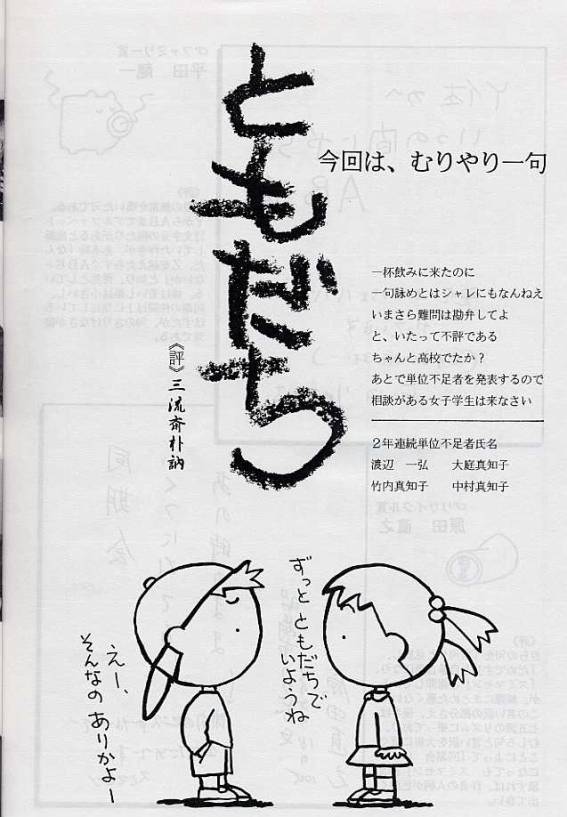 今回は、むりやり一句
ともだち
《評》三流斎朴訥
一杯飲みに来たのに
一句詠めとはシャレにもなんねえ
いまさら難問は勘弁してよ
と、いたって不評である
ちゃんと高校でたか？
あとで単位不足者を発表するので
相談がある女子学生は来なさい
2年連続単位不足者氏名
渡辺　一弘　　大庭真知子
竹内真知子　　中村真知子
ずっと ともだちで
いようね
えー、
そんなの ありかよー